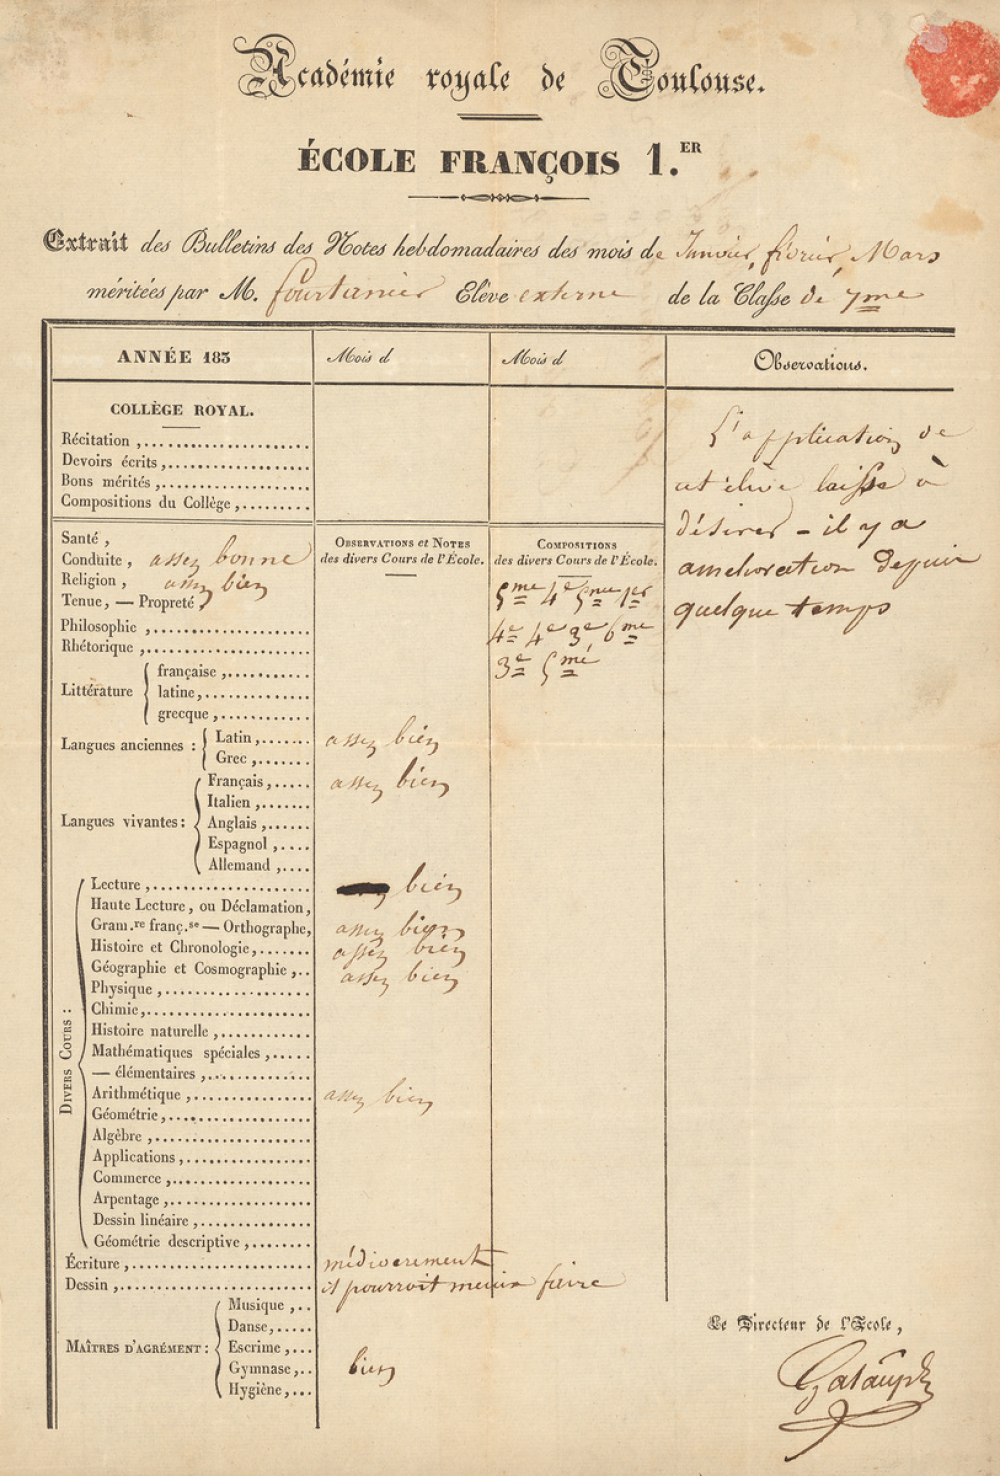 Académie royale de Toulouse.
ÉCOLE FRANÇOIS 1.ER
Extrait des Bulletins des Notes hebdomadaires des mois de Janvier, février, Mars
méritées par M. fourtanier Elève externe de la Classe de 7me
ANNÉE 183 Mois d Mois d Observations.
COLLÈGE ROYAL.
Récitation ,
Devoirs écrits ,
Bons mérités ,
Compositions du Collège ,
L'application de
cet élève laisse à
désirer - il y a
amelioration depuis
quelque temps
OBSERVATIONS et NOTES
des divers Cours de l'École.
COMPOSITIONS
des divers Cours de l'École.
5me 4e 5me 1er
4e 4e 3e 6me
3e 5me
Santé ,
Conduite , assez bonne
Religion , assez bien
Tenue, — Propreté ,
Philosophie ,
Rhétorique ,
Littérature
française ,
latine,
grecque ,
Langues anciennes :
Latin , assez bien
Grec ,
Langues vivantes :
Français , assez bien
Italien ,
Anglais ,
Espagnol ,
Allemand ,
DIVERS COURS :
Lecture , bien
Haute Lecture , ou Déclamation,
Gram.re franç.se — Orthographe, assez bien
Histoire et Chronologie, assez bien
Géographie et Cosmographie , assez bien
Physique ,
Chimie,
Histoire naturelle ,
Mathématiques spéciales ,
— élémentaires ,
Arithmétique , assez bien
Géométrie,
Algèbre ,
Applications ,
Commerce ,
Arpentage ,
Dessin linéaire ,
Géométrie descriptive ,
Écriture , médiocrement
Dessin , il pourroit mieux faire
MAÎTRES D'AGRÉMENT :
Musique ,
Danse,
Escrime ,
Gymnase, bien
Hygiène ,
Le Directeur de l'Ecole ,